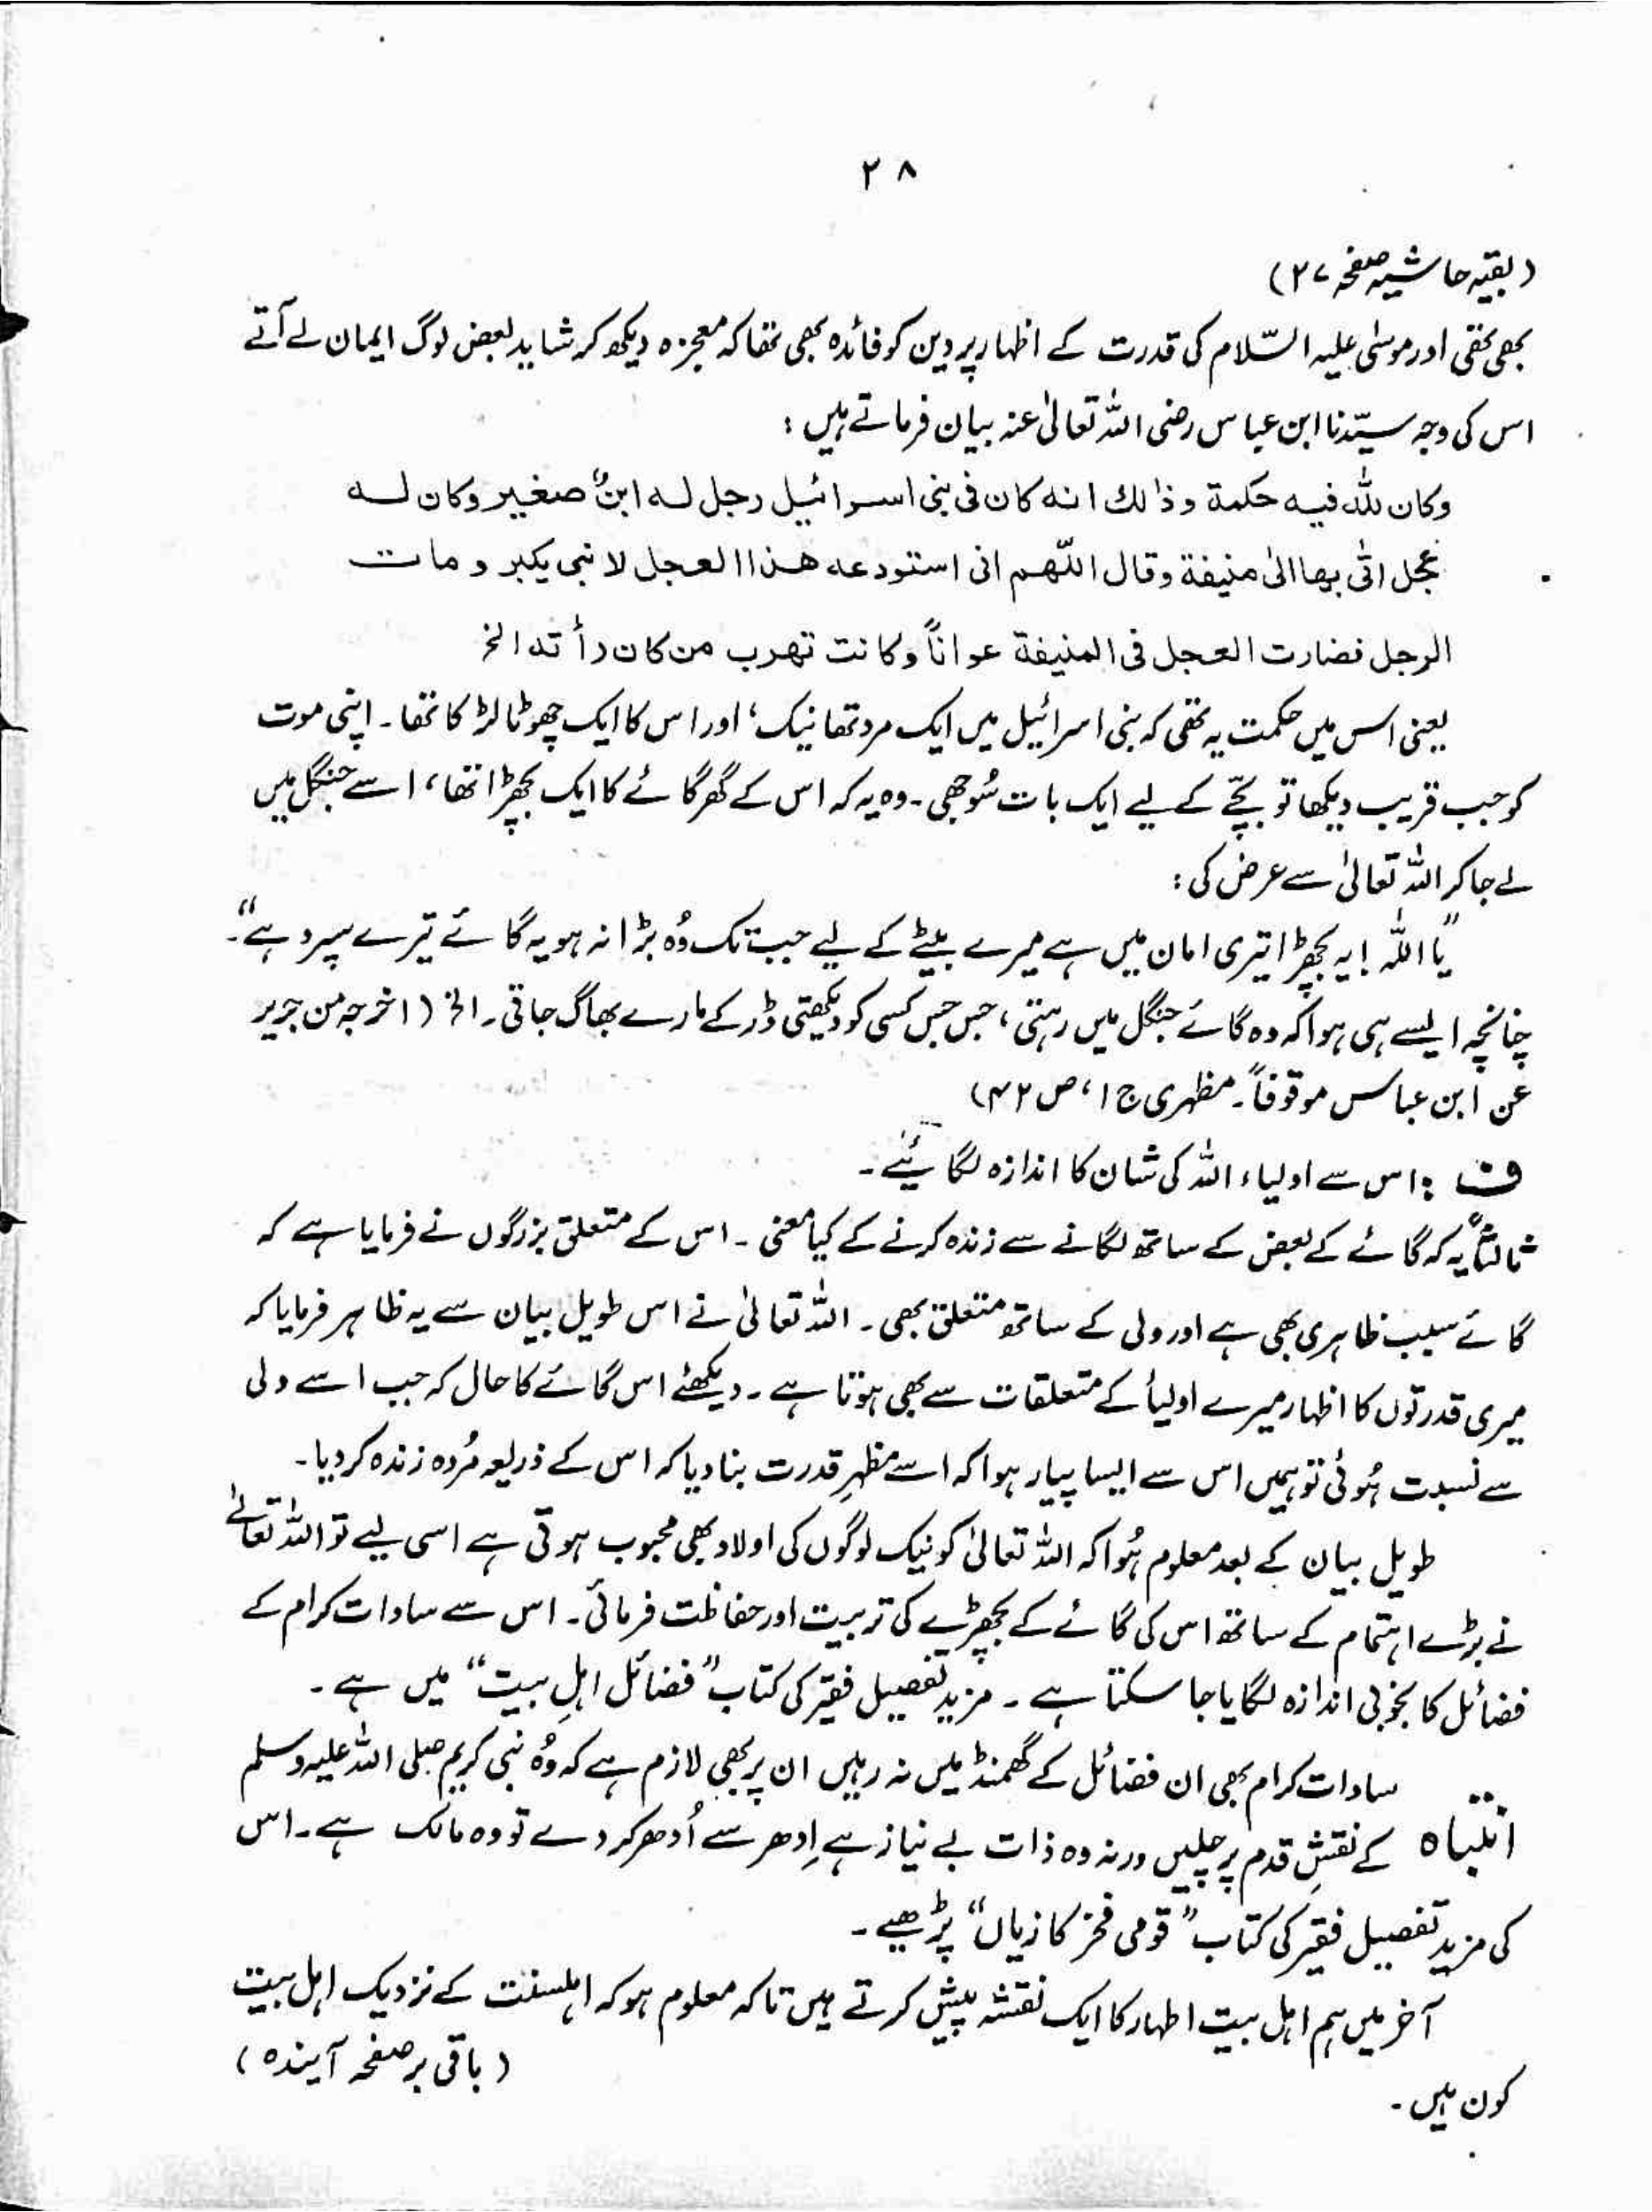 ۲۸
(بقیہ حاشیہ صفحہ ۲۷)
بھی تھی اور موسٰی علیہ السّلام کی قدرت کے اظہار پر دین کو فائدہ بھی تھا کہ معجزہ دیکھ کر شاید بعض لوگ ایمان لے آتے
اس کی وجہ سیّدنا ابن عباس رضی اللہ تعالیٰ عنہ بیان فرماتے ہیں :
وکان للہ فیہ حکمة و ذالك انه کان فی بنی اسرائیل رجل له ابنٌ صغیر وکان له
عجل اتٰی بھا الیٰ منیفة وقال اللّٰھم انی استودعه ھذا العجل لا نبی یکبر و مات
الرجل فضارت العجل فی المنیفة عواناً وکانت تھرب من کان رأته الخ
یعنی اس میں حکمت یہ تھی کہ بنی اسرائیل میں ایک مرد تھا نیک، اور اس کا ایک چھوٹا لڑکا تھا۔ اپنی موت
کو جب قریب دیکھا تو بچّے کے لیے ایک بات سُوجھی۔ وہ یہ کہ اس کے گھر گائے کا ایک بچھڑا تھا، اسے جنگل میں
لے جا کر اللہ تعالیٰ سے عرض کی :
"یا اللہ! یہ بچھڑا تیری امان میں ہے میرے بیٹے کے لیے جب تک وُہ بڑا نہ ہو یہ گائے تیرے سپرد ہے"۔
چنانچہ ایسے ہی ہوا کہ وہ گائے جنگل میں رہتی، جس جس کسی کو دیکھتی ڈر کے مارے بھاگ جاتی۔ الخ (اخرجہ من جریر
عن ابن عباس موقوفاً۔ مظہری ج ۱، ص ۴۲)
ف : اس سے اولیاء اللہ کی شان کا اندازہ لگائیے۔
ثالثاً یہ کہ گائے کے بعض کے ساتھ لگانے سے زندہ کرنے کے کیا معنی۔ اس کے متعلق بزرگوں نے فرمایا ہے کہ
گائے سبب ظاہری بھی ہے اور ولی کے ساتھ متعلق بھی۔ اللہ تعالیٰ نے اس طویل بیان سے یہ ظاہر فرمایا کہ
میری قدرتوں کا اظہار میرے اولیأ کے متعلقات سے بھی ہوتا ہے۔ دیکھئے اس گائے کا حال کہ جب اسے ولی
سے نسبت ہُوئی تو ہمیں اس سے ایسا پیار ہوا کہ اسے مظہرِ قدرت بنا دیا کہ اس کے ذریعہ مُردہ زندہ کر دیا۔
طویل بیان کے بعد معلوم ہُوا کہ اللہ تعالیٰ کو نیک لوگوں کی اولاد بھی محبوب ہوتی ہے اسی لیے تو اللہ تعالیٰ
نے بڑے اہتمام کے ساتھ اس کی گائے کے بچھڑے کی تربیت اور حفاظت فرمائی۔ اس سے سادات کرام کے
فضائل کا بخوبی اندازہ لگایا جا سکتا ہے۔ مزید تفصیل فقیر کی کتاب "فضائل اہلِ بیت" میں ہے۔
سادات کرام بھی ان فضائل کے گھمنڈ میں نہ رہیں ان پر بھی لازم ہے کہ وُہ نبی کریم صلی اللہ علیہ وسلم
انتباہ کے نقشِ قدم پر چلیں ورنہ وہ ذات بے نیاز ہے اِدھر سے اُدھر کر دے تو وہ مالک ہے۔ اس
کی مزید تفصیل فقیر کی کتاب "قومی فخر کا زیاں" پڑھیے۔
آخر میں ہم اہل بیت اطہار کا ایک نقشہ پیش کرتے ہیں تاکہ معلوم ہو کہ اہلسنت کے نزدیک اہل بیت
کون ہیں۔
(باقی بر صفحہ آیندہ)